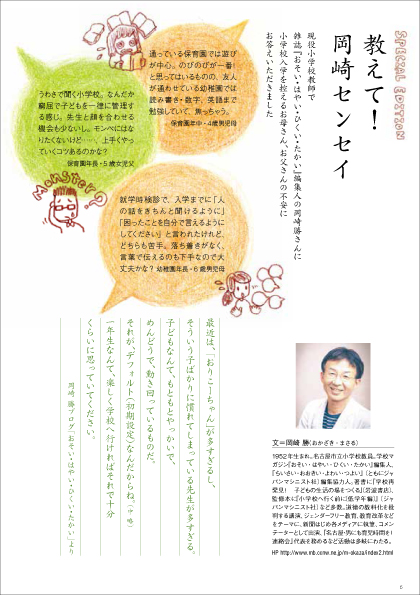 SPECIAL EDITION
教えて！
岡崎センセイ
現役小学校教師で
雑誌『おそい・はやい・ひくい・たかい』編集人の岡崎勝さんに
小学校入学を控えるお母さん、お父さんの不安に
お答えいただきました
通っている保育園では遊び
が中心。のびのびが一番！
と思ってはいるものの、友人
が通わせている幼稚園では
読み書き・数字、英語まで
勉強していて、焦っちゃう。
保育園年中・4歳男児母
うわさで聞く小学校。なんだか
窮屈で子どもを一律に管理する
感じ。先生と顔を合わせる
機会も少ないし。モンペにはな
りたくないけど……、上手くやっ
ていくコツあるのかな？
保育園年長・5歳女児父
Monster?
就学時検診で、入学までに「人
の話をきちんと聞けるように」
「困ったことを自分で言えるように
してください」と言われたけれど、
どちらも苦手。落ち着きがなく、
言葉で伝えるのも下手なので大
丈夫かな？ 幼稚園年長・6歳男児母
最近は、「おりこーちゃん」が多すぎるし、
そういう子ばかりに慣れてしまっている先生が多すぎる。
子どもなんて、もともとやっかいで、
めんどうで、動き回っているものだ。
それが、デフォルト（初期設定）なんだからね。（中略）
一年生なんて、楽しく学校へ行ければそれで十分
くらいに思っていてください。
岡崎 勝ブログ「おそい・はやい・ひくい・たかい」より
文＝岡崎 勝（おかざき・まさる）
1952年生まれ。名古屋市立小学校教員。学校マ
ガジン『おそい・はやい・ひくい・たかい』編集人、
『ちいさい・おおきい・よわい・つよい』（ともにジャ
パンマシニスト社）編集協力人。著書に『学校再
発見！ 子どもの生活の場をつくる』（岩波書店）、
監修本に『小学校へ行く前に（低学年編）』（ジャ
パンマシニスト社）など多数。道徳の教科化を批
判する講演、ジェンダーフリー教育、教育改革など
をテーマに、新聞はじめ各メディアに執筆、コメン
テーターとして出演。「名古屋・男にも育児時間を！
連絡会」代表を務めるなど活動は多岐にわたる。